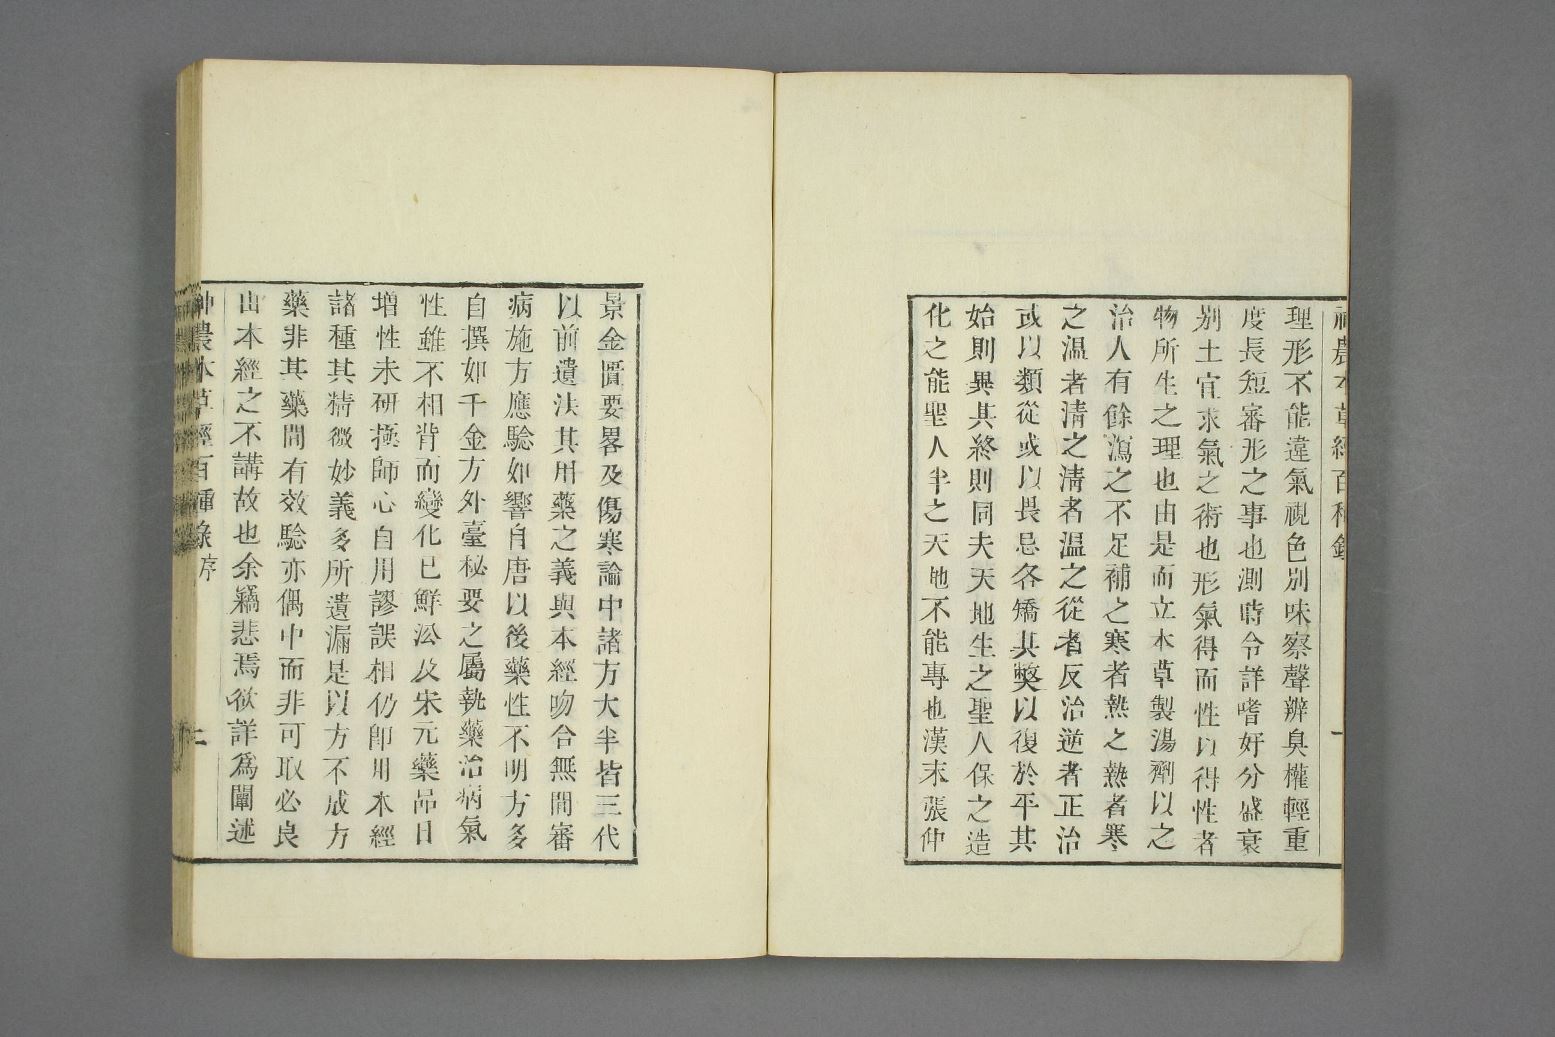 神農本草經百種錄
一
理形不能違氣視色別味察聲辨臭權輕重
度長短審形之事也測時令詳嗜好分盛衰
別土宜求氣之術也形氣得而性以得性者
物所生之理也由是而立本草製湯劑以之
治人有餘瀉之不足補之寒者熱之熱者寒
之温者清之清者温之從者反治逆者正治
或以類從或以畏忌各矯其獘以復於平其
始則異其終則同夫天地生之聖人保之造
化之能聖人半之天地不能專也漢末張仲
景金匱要畧及傷寒論中諸方大半皆三代
以前遺法其用藥之義與本經吻合無間審
病施方應驗如響自唐以後藥性不明方多
自撰如千金方外臺秘要之屬執藥治病氣
性雖不相背而變化已鮮沿及宋元藥品日
增性未研極師心自用謬誤相仍即用本經
諸種其精微妙義多所遺漏是以方不成方
藥非其藥間有效驗亦偶中而非可取必良
由本經之不講故也余竊悲焉欲詳爲闡述
神農本草經百種錄序
二